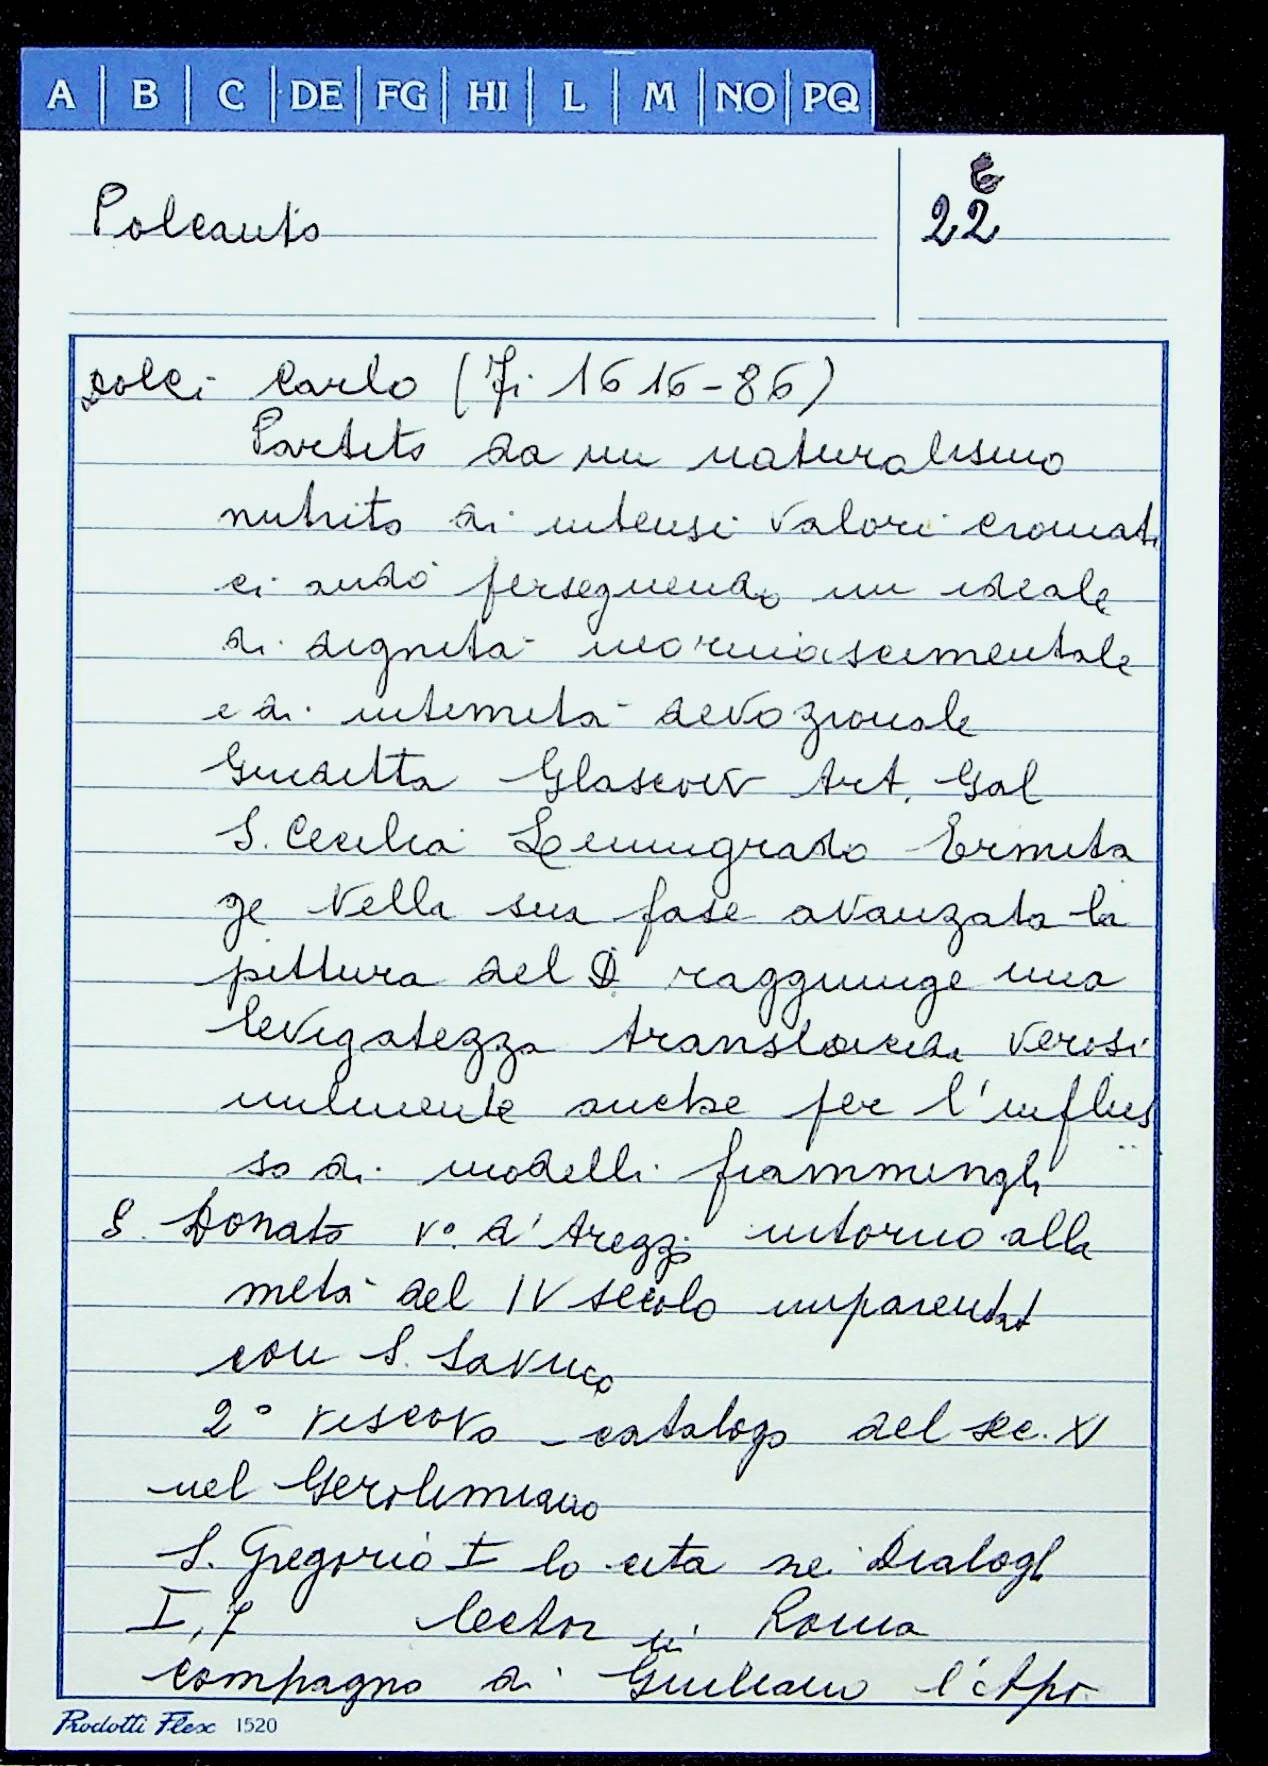 A B C DE FG HI L M NO PQ
Polcanto
22
Dolci Carlo (Fi 1616-86)
Partito da un naturalismo
nutrito di intensi valori cromati
ci andò perseguendo un ideale
di dignità neorinascimentale
e di intimità devozionale
Giuditta Glascow Art. Gal
S. Cecilia Leningrado Ermita
ge Nella sua fase avanzata la
pittura del D raggiunge una
levigatezza translucida verosi
milmente anche per l'influs
so di modelli fiamminghi
S. Donato vo. d'Arezzo intorno alla
metà del IV secolo imparentat
con S. Savino
2° vescovo - catalogo del sec. XI
nel Gerolimiano
S. Gregorio I lo cita nei Dialoghi
I,7 lector in Roma
compagno di Giuliano l'Apo
Prodotti Flex 1520